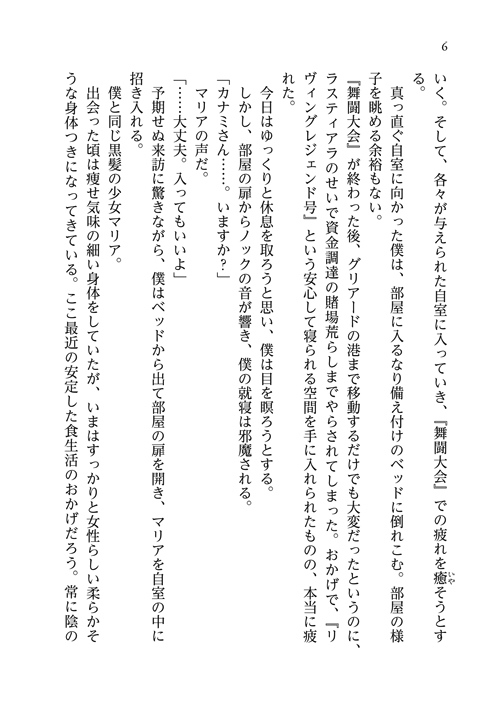 6
いく。そして、各々が与えられた自室に入っていき、『舞闘大会』での疲れを癒そうとす
る。
真っ直ぐ自室に向かった僕は、部屋に入るなり備え付けのベッドに倒れこむ。部屋の様
子を眺める余裕もない。
『舞闘大会』が終わった後、グリアードの港まで移動するだけでも大変だったというのに、
ラスティアラのせいで資金調達の賭場荒らしまでやらされてしまった。おかげで、『リ
ヴィングレジェンド号』という安心して寝られる空間を手に入れられたものの、本当に疲
れた。
今日はゆっくりと休息を取ろうと思い、僕は目を瞑ろうとする。
しかし、部屋の扉からノックの音が響き、僕の就寝は邪魔される。
「カナミさん……。いますか?」
マリアの声だ。
「……大丈夫。入ってもいいよ」
予期せぬ来訪に驚きながら、僕はベッドから出て部屋の扉を開き、マリアを自室の中に
招き入れる。
僕と同じ黒髪の少女マリア。
出会った頃は痩せ気味の細い身体をしていたが、いまはすっかりと女性らしい柔らかそ
うな身体つきになってきている。ここ最近の安定した食生活のおかげだろう。常に陰の
いや